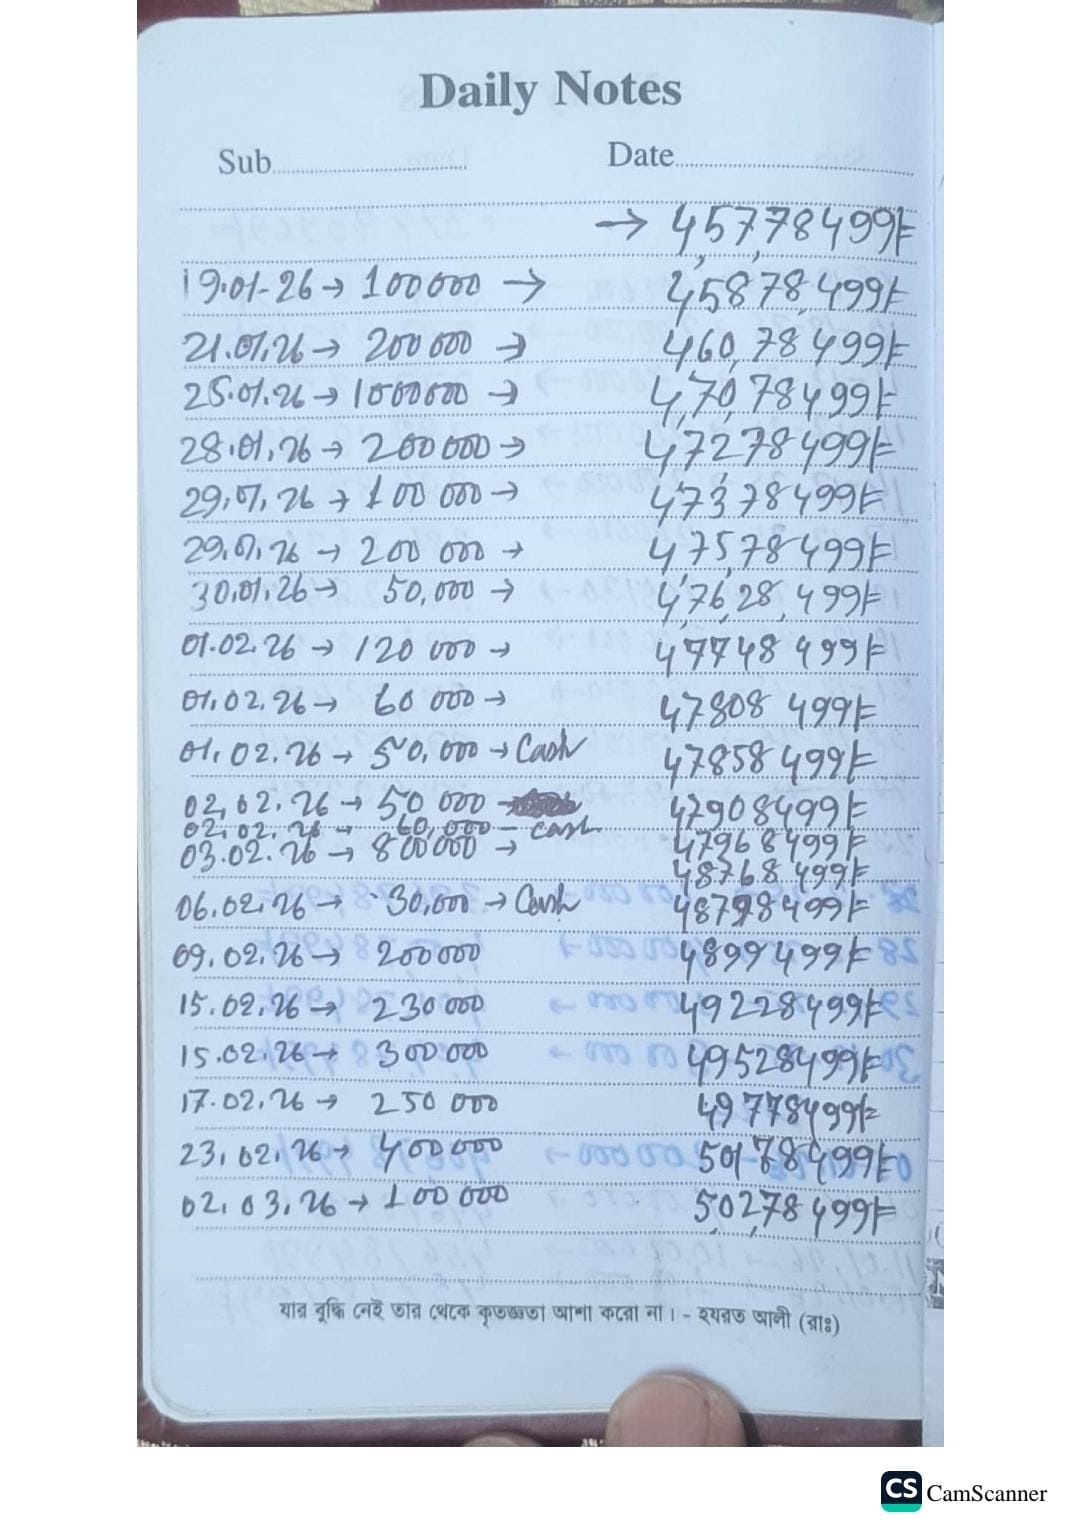 Daily Notes
Sub................................ Date................................
→ 4,57,78499/=
19.01-26 → 100000 → 45878,499/=
21.01.26 → 200 000 → 460,78 499/=
25.01.26 → 1000000 → 4,70,78499/=
28.01.26 → 200000 → 47278499/=
29.01.26 → 100 000 → 47378499/=
29.01.26 → 200 000 → 4,75,78499/=
30.01.26 → 50,000 → 4,76,28,499/=
01.02.26 → 120 000 → 47748 499/=
01.02.26 → 60 000 → 47808 499/=
01.02.26 → 50,000 → Cash 47858 499/=
02.02.26 → 50 000 → 47908499/=
02.02.26 → 60,000 – cash 47968499/=
03.02.26 → 800000 → 48768 499/=
06.02.26 → 30,000 → Cash 48798499/=
09.02.26 → 200000 4899 499/=
15.02.26 → 230000 49228499/=
15.02.26 → 300000 49528499/=
17.02.26 → 250 000 49778499/=
23.02.26 → 400000 50178499/=
02.03.26 → 100 000 5,02,78,499/=
যার বুদ্ধি নেই তার থেকে কৃতজ্ঞতা আশা করো না। - হযরত আলী (রাঃ)
CS CamScanner